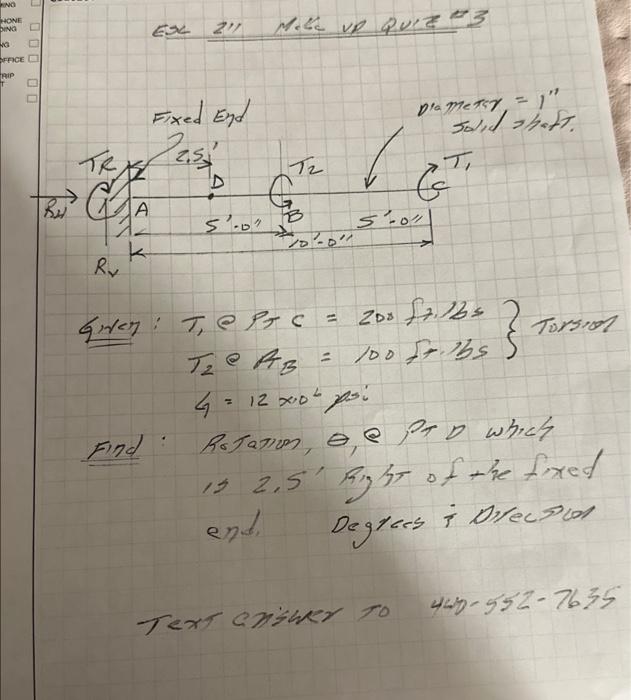 ING
HONE
DING
NG
OFFICE
TRIP
T
ESC 211 Make up Quiz #3
Fixed End
Diameter = 1"
Solid shaft.
2.5'
TR
D
T2
T1
C
RH
A
B
5'-0"
5'-0"
10'-0"
RV
Given: T1 @ PT C = 200 ft.lbs } Torsion
T2 @ PTB = 100 ft.lbs
G = 12 x10⁶ psi
Find: Rotation, θ, @ PT D which
is 2.5' Right of the fixed
end. Degrees & Direction
Text answer to 440-552-7635